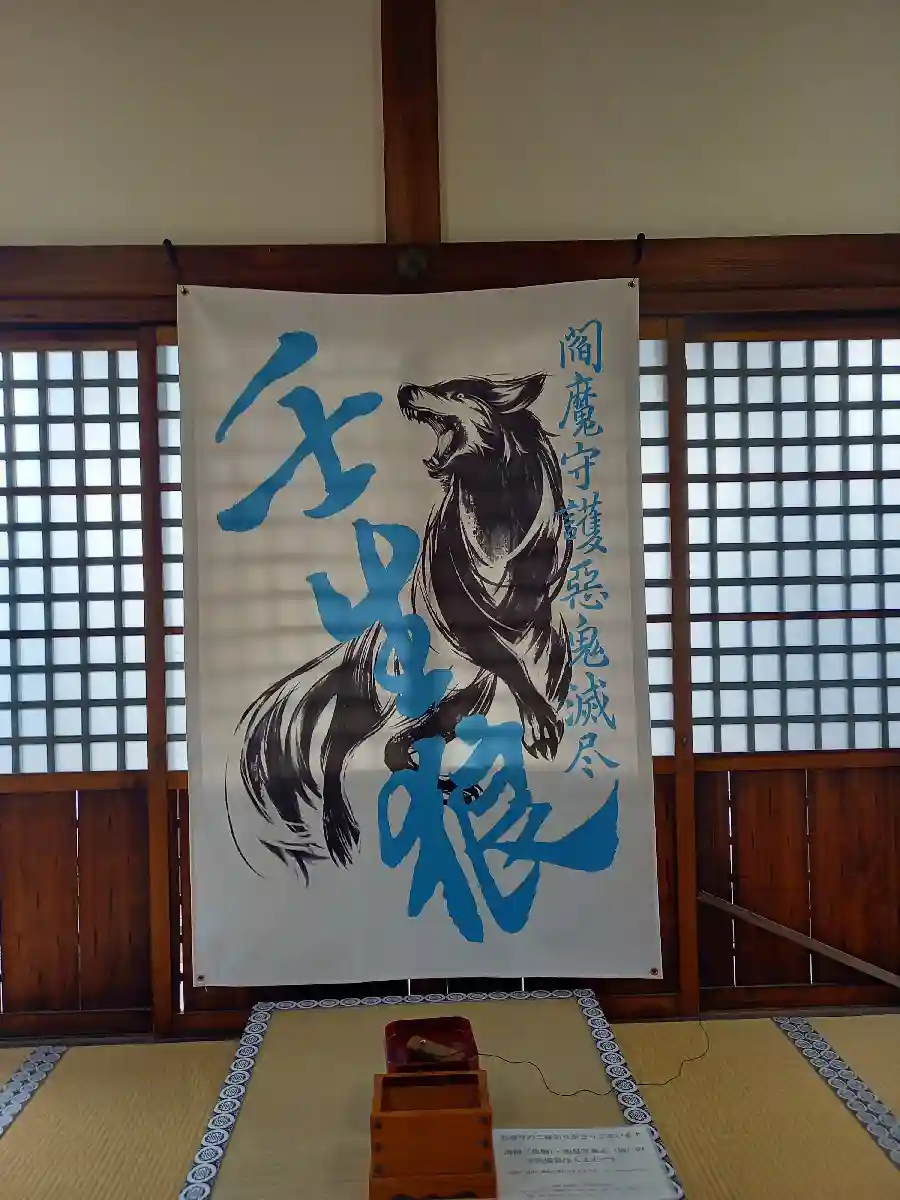 閻魔守護惡鬼滅尽
壬生狼